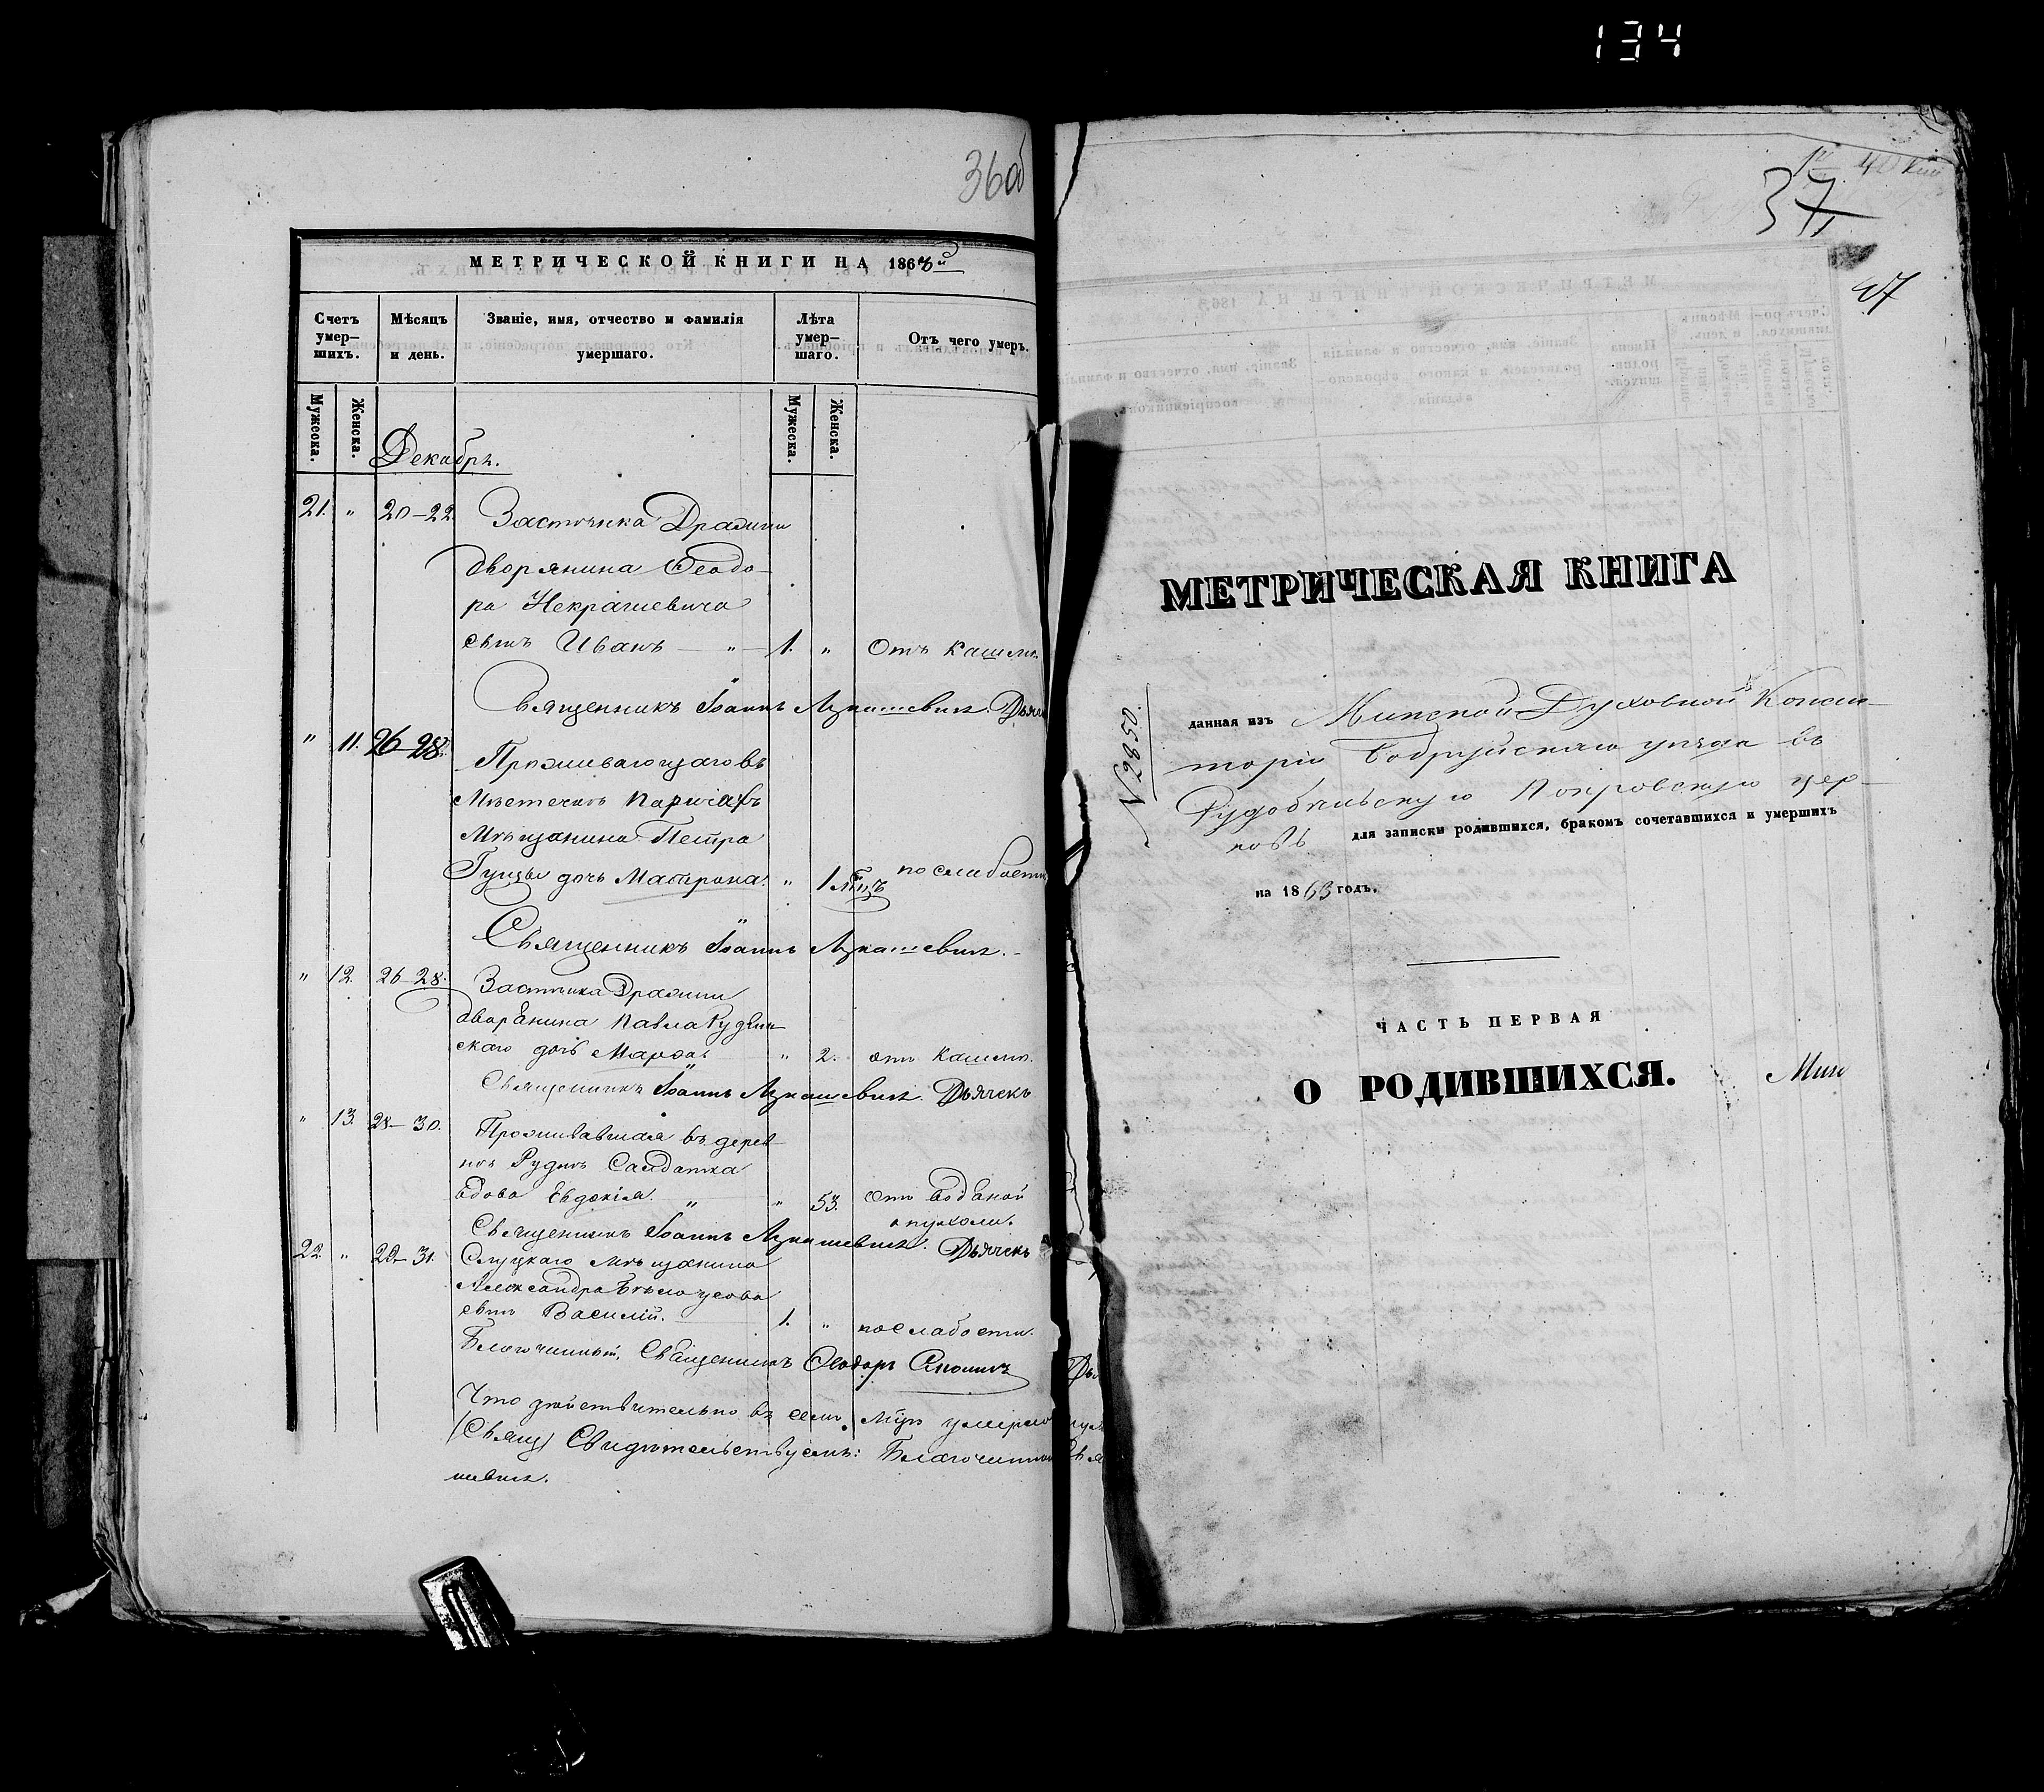 134
36об
МЕТРИЧЕСКОЙ КНИГИ НА 1863й
Счетъ умер–шихъ.
Мѣсяцъ и день.
Званіе, имя, отчество и фамилія умершаго.
Лѣта умер–шаго.
Отъ чего умеръ.
Мужеска.
Женска.
Мужеска.
Женска.
Декабрь.
21. " 20–22. Застѣнка Дражни
дворянина Ѳеодо–
ра Некрашевича
сынъ Иванъ — " — 1. " Отъ кашля
Священникъ Іоаннъ Лукашевичъ.
" 11. 26–28. Проживающаго въ
Мѣстечкѣ Паричахъ
Мѣщанина Петра
дочь Матрона. " 1 послабости
Священникъ Іоаннъ Лукашевичъ.
" 12. 26–28. Застѣнка Дражни
дворянина Павла
дочь " 2. отъ кашля.
Священникъ Іоаннъ Лукашевичъ. Дьячекъ
" 13. 28–30. Проживавшая въ дерев–
нѣ Руднѣ Салдатка
вдова Евдокія. " " 53. Отъ водяной
опухоли.
Священникъ Іоаннъ Лукашевичъ. Дьячекъ
22. " 29–31. Слуцкаго мѣщанина
Александра Бѣлоусова
сынъ Василій. 1. " послабости.
Благочинный, Священникъ Ѳеодоръ
Что дѣйствительно въ семъ
Свидѣтельствуемъ: Благочинный
шевичъ.
37
47
МЕТРИЧЕСКАЯ КНИГА
№2850.
данная изъ Минской Духовной Консис–
торіи Бобруйскаго уѣзда въ
Рудобѣльскую Покровскую цер–
ковь для записки родившихся, бракомъ сочетавшихся и умершихъ
на 1863 годъ.
ЧАСТЬ ПЕРВАЯ
О РОДИВШИХСЯ.